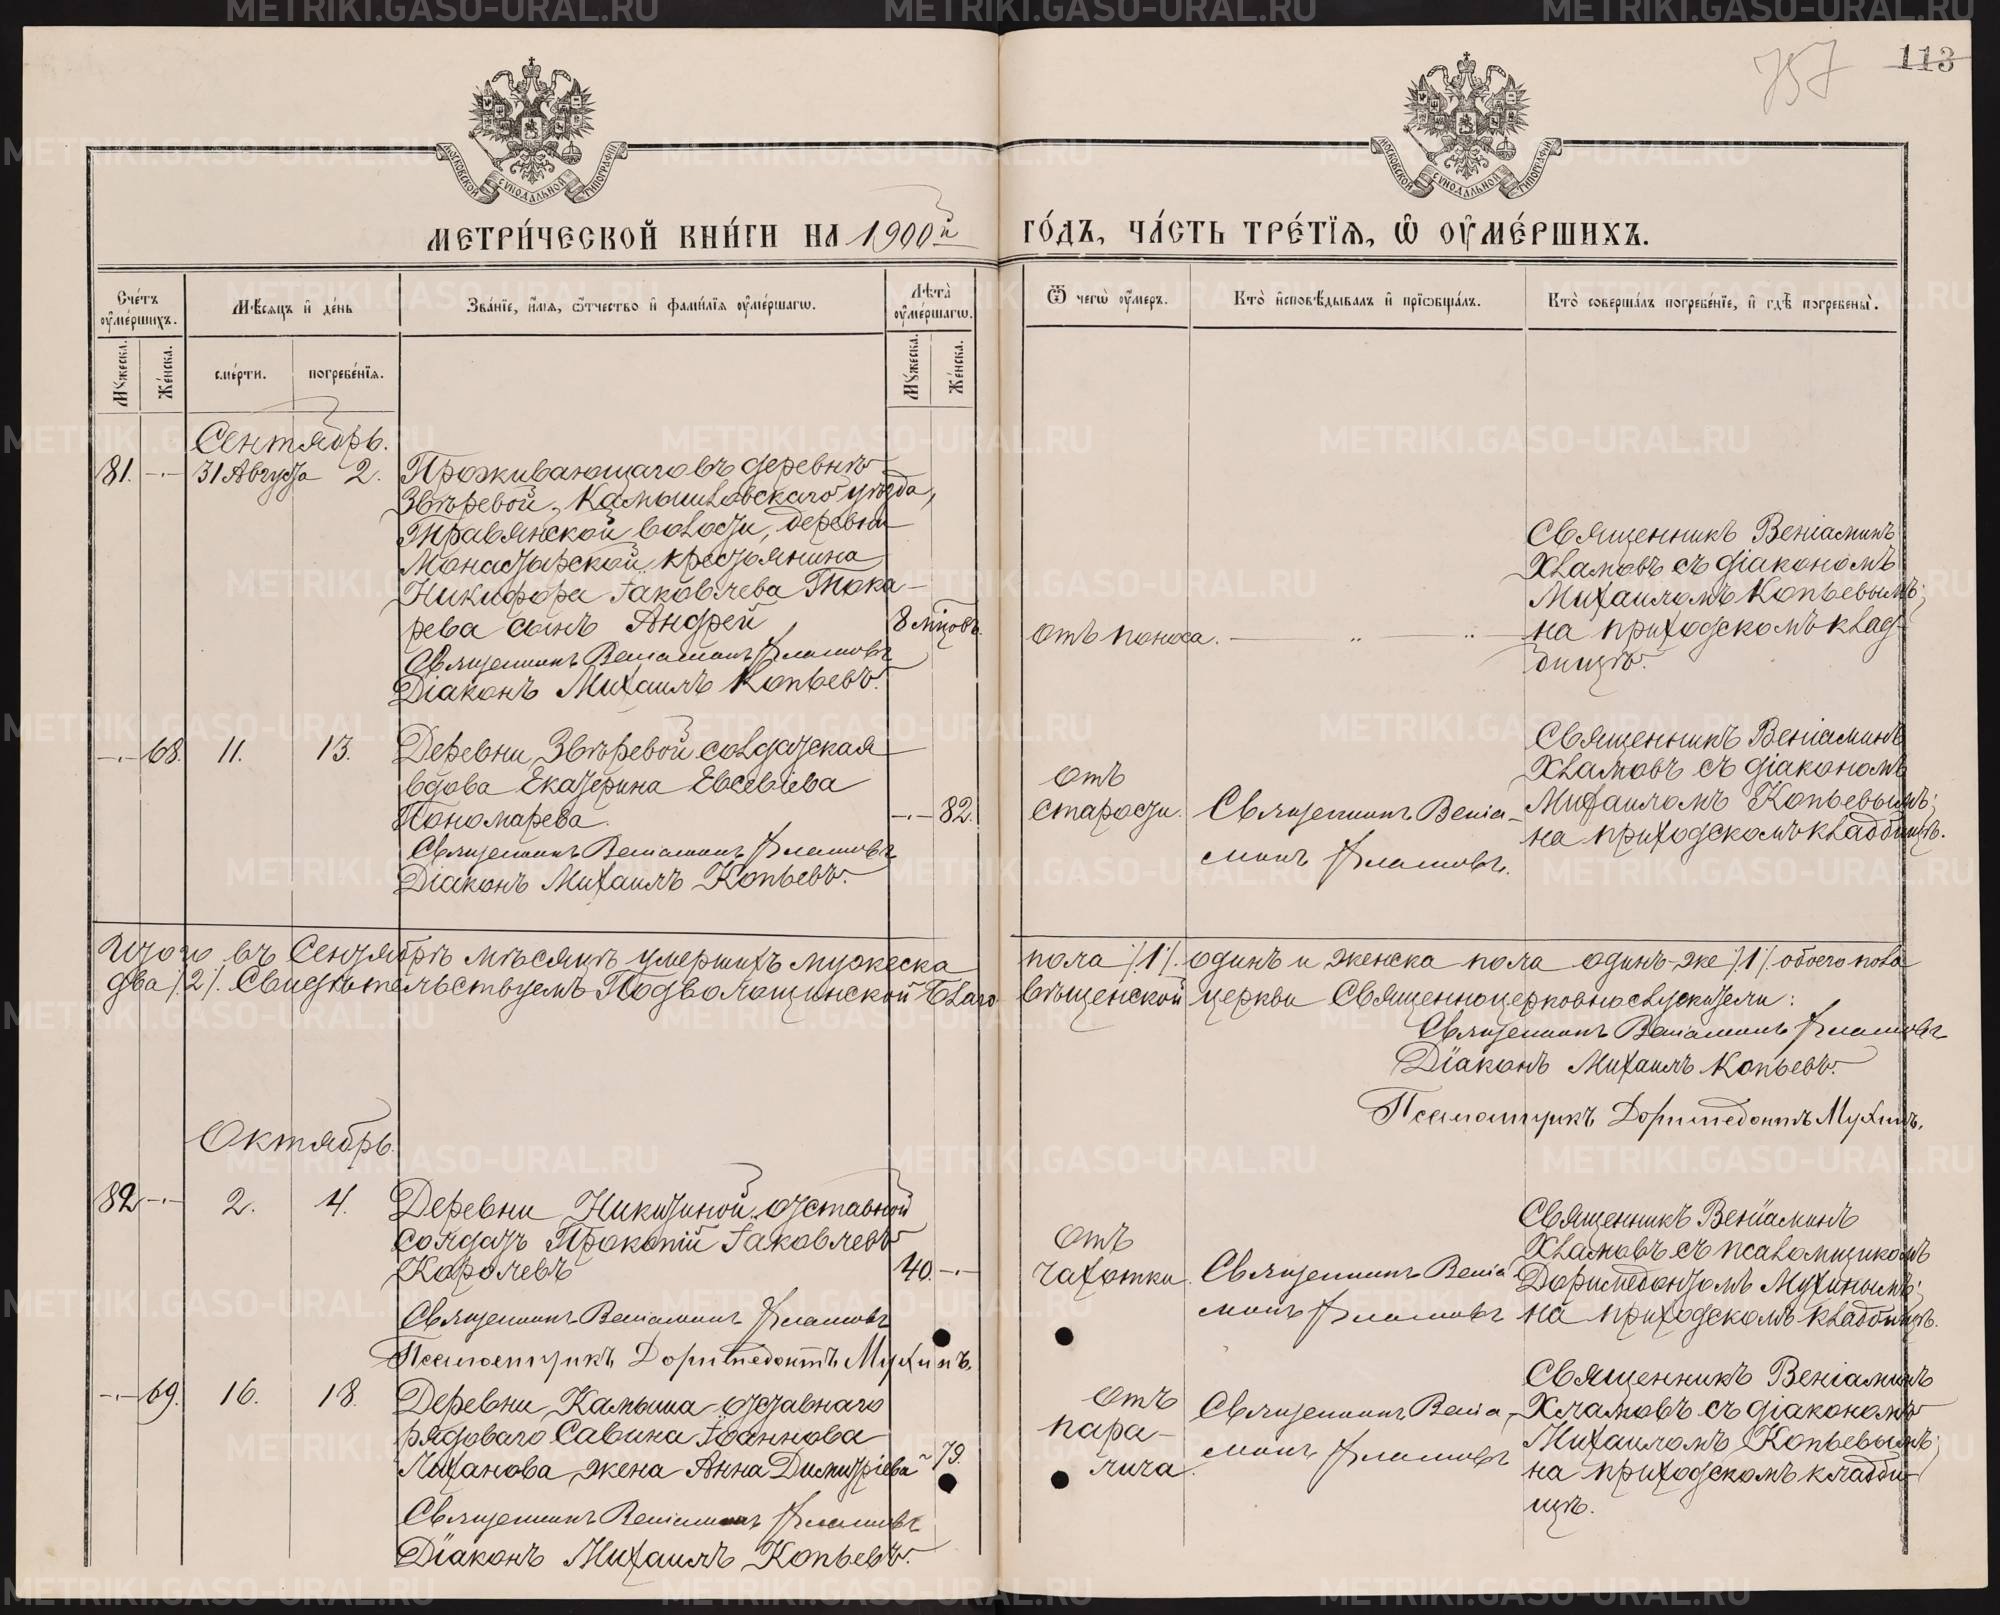 757
113
МОСКОВСКОЙ СѴНОДАЛЬНОЙ ТИПОГРАФІИ
МОСКОВСКОЙ СѴНОДАЛЬНОЙ ТИПОГРАФІИ
МЕТРИ́ЧЕСКОЙ КНИ́ГИ НА 1900й ГО́ДЪ, ЧА́СТЬ ТРЕ́ТІѦ, Ѡ ОУМЕ́РШИХЪ.
Сче́тъ оуме́ршихъ.
Мѣсѧцъ и де́нь
Зва́нїе, и́мѧ, ѻ҆́тчество и фами́лїѧ оуме́ршагѡ.
Лѣта̀ оуме́ршагѡ.
Ѿ чегѡ̀ оу́меръ.
Кто̀ исповѣ́дывалъ и прїѡбща́лъ.
Кто̀ соверша́лъ погребе́нїе, и гдѣ̀ погребены̀.
Мꙋ́жеска.
Же́нска.
сме́рти.
погребе́нїѧ.
Мꙋ́жеска.
Же́нска.
Сентябрь.
81. -.- 31 Августа 2. Проживающаго въ деревнѣ
Звѣревой, Камышловскаго уѣзда,
Травянской волости, деревни
Монастырской крестьянина
Никифора Іаковлева Тока-
рева сынъ Андрей 8 мцовъ. отъ поноса. — „ — „ —
Священникъ Веніаминъ Хламовъ
Діаконъ Михаилъ Копьевъ.
Священникъ Веніаминъ
Хламовъ съ діакономъ
Михаиломъ Копьевымъ;
на приходскомъ клад-
бищѣ.
-.- 68. 11. 13. Деревни Звѣревой солдатская
вдова Екатерина Евсевіева
Пономарева. -.- 82.
Священникъ Веніаминъ Хламовъ
Діаконъ Михаилъ Копьевъ.
отъ
старости.
Священникъ Веніа-
минъ Хламовъ.
Священникъ Веніаминъ
Хламовъ съ діакономъ
Михаиломъ Копьевымъ;
на приходскомъ кладбищѣ.
Итого въ Сентябрѣ мѣсяцѣ умершихъ мужеска пола /1/. одинъ и женска пола одинъ-же /1/. обоего пола
два /2/. Свидѣтельствуемъ Подволошинской Благовѣщенской церкви Священноцерковнослужители:
Священникъ Веніаминъ Хламовъ
Діаконъ Михаилъ Копьевъ.
Псаломщикъ Доримедонтъ Мухинъ.
Октябрь.
82 -.- 2. 4. Деревни Никитиной отставной
солдатъ Прокопій Іаковлевъ
Королевъ 40. -.-
Священникъ Веніаминъ Хламовъ
Псаломщикъ Доримедонтъ Мухинъ.
отъ
чахотки.
Священникъ Веніа-
минъ Хламовъ
Священникъ Веніаминъ
Хламовъ съ псаломщикомъ
Доримедонтомъ Мухинымъ;
на приходскомъ кладбищѣ.
-.- 69. 16. 18. Деревни Камыша отставнаго
рядоваго Савина Іоаннова
Лаханова жена Анна Димитріева 79.
Священникъ Веніаминъ Хламовъ
Діаконъ Михаилъ Копьевъ.
отъ
пара-
лича.
Священникъ Веніа-
минъ Хламовъ
Священникъ Веніаминъ
Хламовъ съ діакономъ
Михаиломъ Копьевымъ;
на приходскомъ кладби-
щѣ.
METRIKI.GASO-URAL.RU